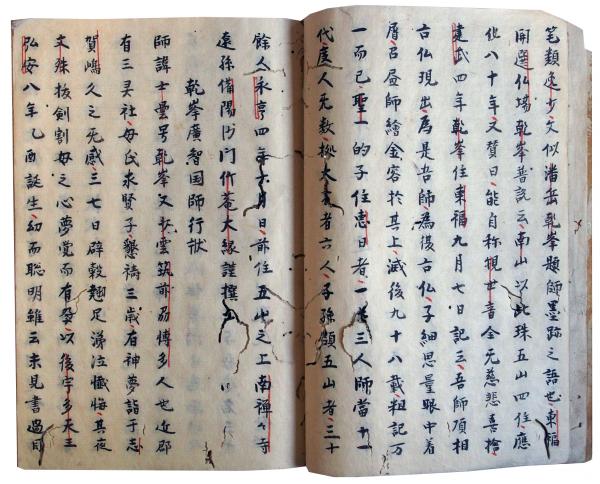 筆類逸少文似潘岳乾峯題師墨跡之語也東福
開選仏場乾峯普説云南山以此珠五山四住應
化八十年又賛曰能自称観世音全无慈悲喜捨
建武四年乾峯住東福九月七日記三吾師頂相
古仏現出為是吾師為復古仏子細思量眼中着
屑召昼師繪金容於其上滅後九十八載粗記万
一而已聖一的子住恵日者一十三人師當十一
代度人无数撡大義者六人子孫領五山者三十
餘人永亨四年六月日前住五山之上南禅々寺
遠孫備陽沙門竹菴大縁謹撰
乾峯廣智国師行状
師諱士雲号乾峯又少雲筑前刕博多人也近郡
有三灵社母氏求賢子懇祷三歳右神夢詣于志
賀嶋久之无感三七日辟穀翹足涕泣懺悔其夜
文殊抜劍割母之心夢覚而有孕以後宇多天王
弘安八年乙酉誕生幼而聡明雖云未見書過目